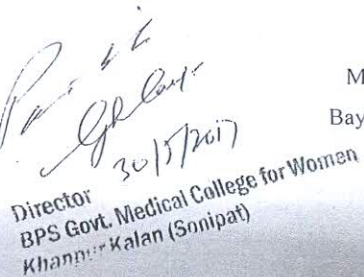 M
Bay
30/5/2017
Director
BPS Govt. Medical College for Women
Khanpur Kalan (Sonipat)